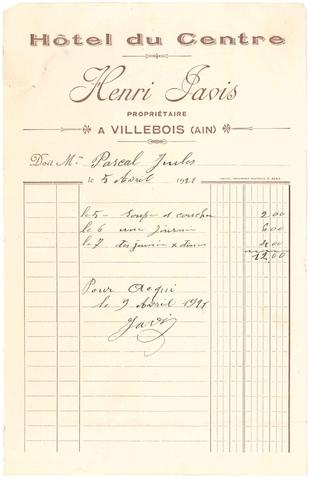 Hôtel du Centre
Henri Javis
PROPRIÉTAIRE
A VILLEBOIS (AIN)
Doit Mr Pascal Jules
le 5 Avril 1921
le 5 soupe et coucher 2.00
le 6 une journée 6.00
le 7 déjeuner x diner 4.00
12.00
Pour Acqui
le 9 Avril 1921
Javis